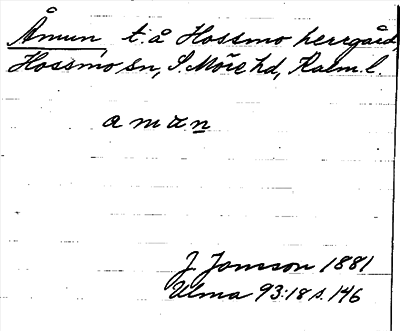 Åmun, t. å Hossmo herrgård,
Hossmo sn, S. Möre hd, Kalm. l.
aman
J. Jonsson 1881
Ulma 93:18 s. 146